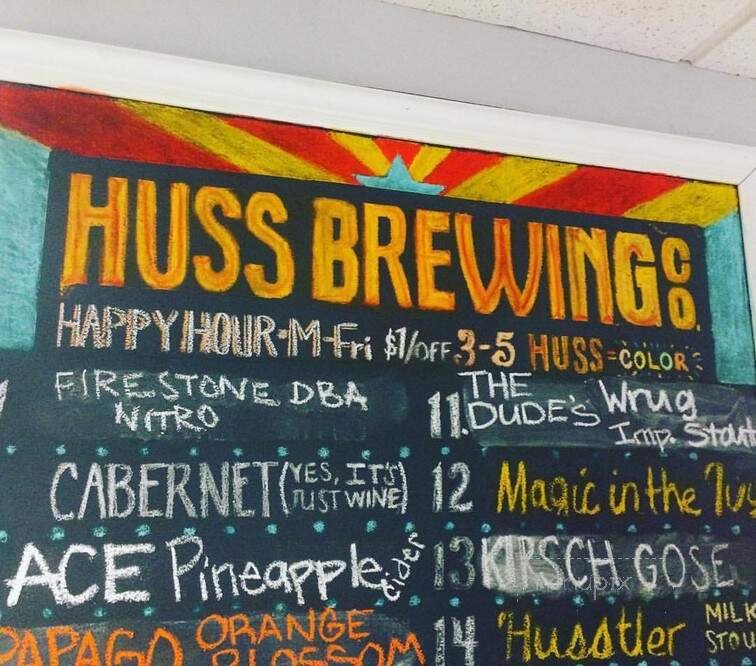 HUSS BREWING CO.
HAPPY HOUR-M-Fri $1/OFF 3-5 HUSS=COLOR
FIRESTONE DBA
NITRO
11. THE
DUDE'S Wrug
Imp. Stout
CABERNET (YES, IT'S
JUST WINE)
12 Magic in the
ACE Pineapple cider
13 KIRSCH GOSE
PAPAGO ORANGE
BLOSSOM
14 Husstler MILK
STOU